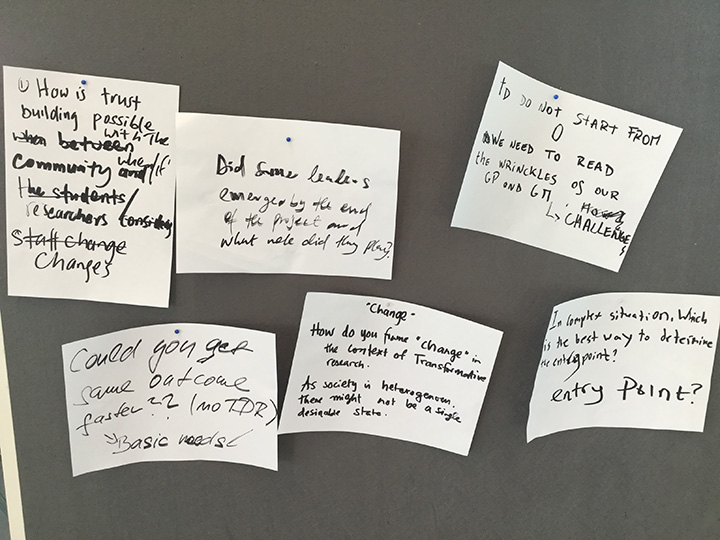 ① How is trust
building possible
with the
when between
community and when/if
the students/
researchers consider
staff change
Changes
Did some leaders
emerged by the end
of the project and
what role did they play?
TD DO NOT START FROM
0
WE NEED TO READ
THE WRINCKLES OF OUR
GP OND GM
↳ CHALLENGES
Could you get
same outcome
faster?? (no TDR)
Basic needs
"Change"
How do you frame "change" in
the context of Transformative
research.
As society is heterogenous,
there might not be a single
desirable state.
In complex situation, which
is the best way to determine
the entrypoint?
entry Point?